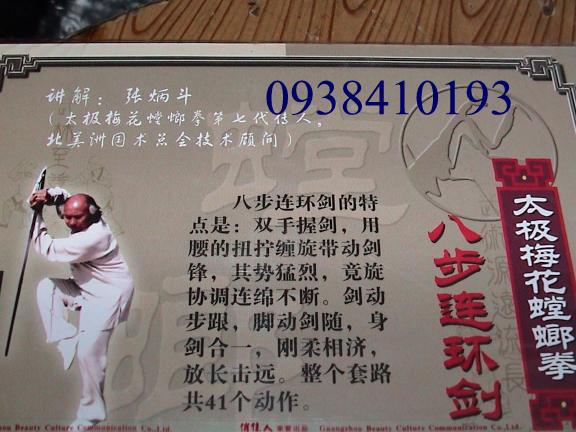 讲解：张炳斗
0938410193
（太极梅花螳螂拳第七代传人，
北美洲国术总会技术顾问）
八步连环剑的特
点是：双手握剑，用
腰的扭拧缠旋带动剑
锋，其势猛烈，竟旋
协调连绵不断。剑动
步跟，脚动剑随，身
剑合一，刚柔相济，
放长击远。整个套路
共41个动作。
八步连环剑
太极梅花螳螂拳
武術源遠流長
Beauty Culture Communication Co.,Ltd.
俏佳人
Guangzhou Beauty Culture Communication Co.,Ltd.